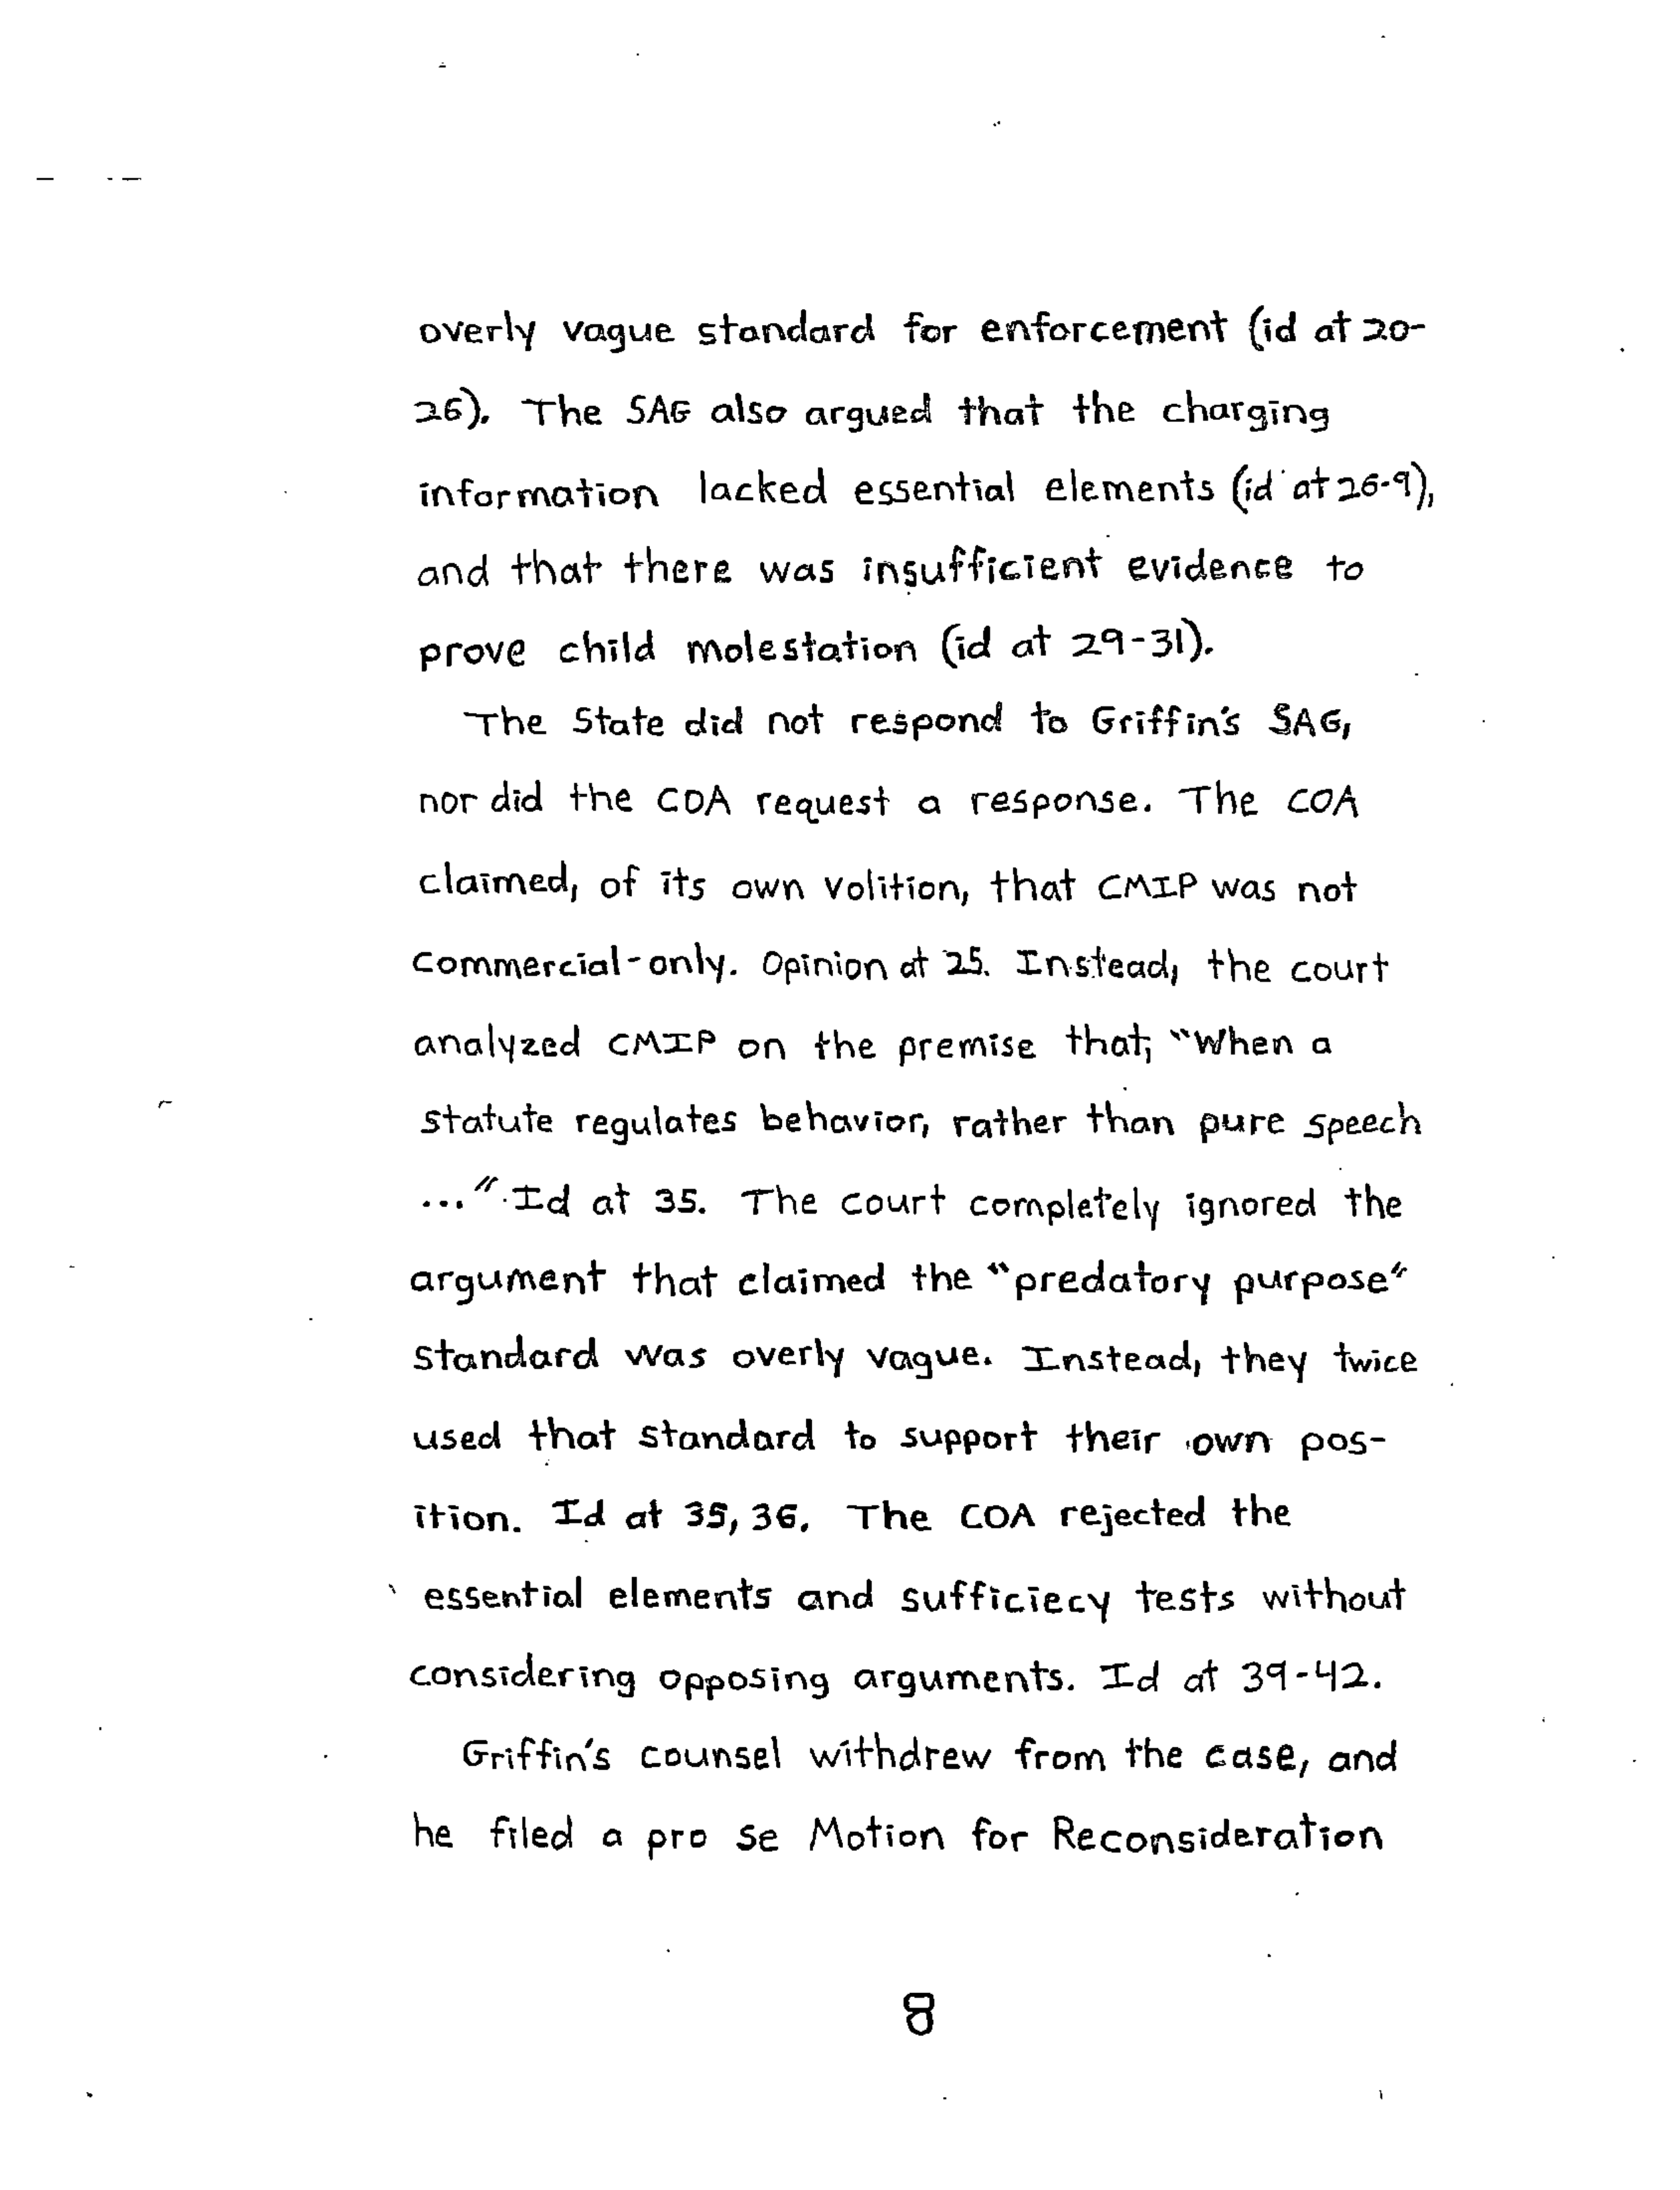 overly vague standard for enforcement (id at 20-
26). The SAG also argued that the charging
information lacked essential elements (id at 26-9),
and that there was insufficient evidence to
prove child molestation (id at 29-31).
The State did not respond to Griffin's SAG,
nor did the COA request a response. The COA
claimed, of its own volition, that CMIP was not
commercial-only. Opinion at 25. Instead, the court
analyzed CMIP on the premise that; "When a
statute regulates behavior, rather than pure speech
..." Id at 35. The court completely ignored the
argument that claimed the "predatory purpose"
standard was overly vague. Instead, they twice
used that standard to support their own pos-
ition. Id at 35, 36. The COA rejected the
essential elements and sufficiecy tests without
considering opposing arguments. Id at 39-42.
Griffin's counsel withdrew from the case, and
he filed a pro se Motion for Reconsideration
8